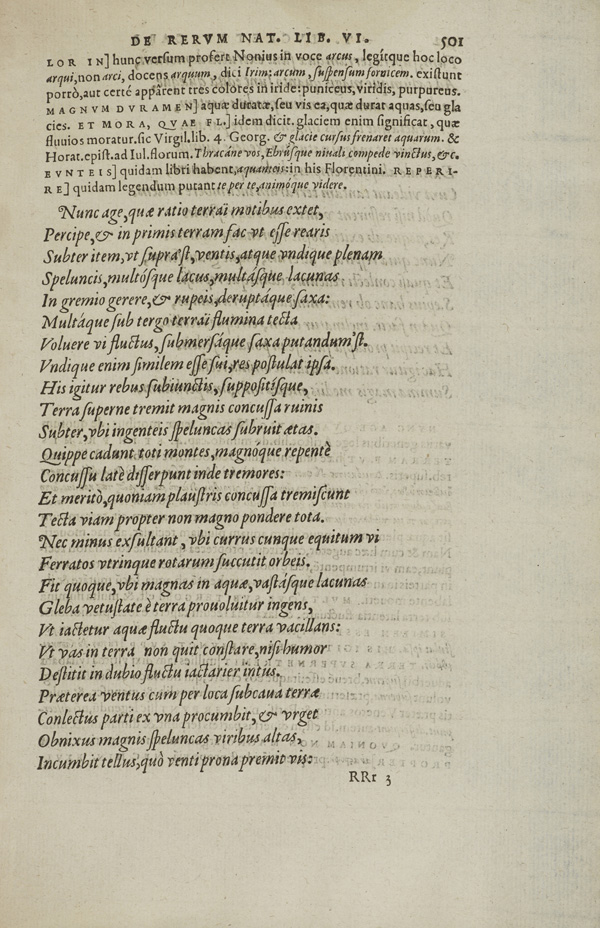 DE RERVM NAT. LIB. VI. 501
LOR IN] hunc versum profert Nonius in voce arcus, legitque hoc loco
arqui, non arci, docens arquum, dici Irim: arcum, suspensum fornicem. existunt
porrò, aut certé apparent tres colores in iride: puniceus, viridis, purpureus.
MAGNVM DVRAMEN] aquæ duratæ, seu vis ea, quæ durat aquas, seu gla
cies. ET MORA, QVAE FL.] idem dicit. glaciem enim significat, quæ
fluuios moratur. sic Virgil. lib. 4. Georg. & glacie cursus frenaret aquarum. &
Horat. epist. ad Iul. florum. Thracáne vos, Ebrúsque niuali compede vinctus, &c.
EVNTEIS] quidam libri habent, aquanteis: in his Florentini. REPERI-
RE] quidam legendum putant te per te, animóque videre.
Nunc age, quæ ratio terraï motibus extet,
Percipe, & in primis terram fac vt esse rearis
Subter item, vt supra'st, ventis, atque vndique plenam
Speluncis, multósque lacus, multásque lacunas
In gremio gerere, & rupeis, deruptáque saxa:
Multáque sub tergo terraï flumina tecta
Voluere vi fluctus, submersáque saxa putandum'st.
Vndique enim similem esse sui, res postulat ipsa.
His igitur rebus subiunctis, suppositísque,
Terra superne tremit magnis concussa ruinis
Subter, vbi ingenteis speluncas subruit ætas.
Quippe cadunt toti montes, magnóque repentè
Concussu latè disserpunt inde tremores:
Et meritò, quoniam plaustris concussa tremiscunt
Tecta viam propter non magno pondere tota.
Nec minus exsultant, vbi currus cunque equitum vi
Ferratos vtrinque rotarum succutit orbeis.
Fit quoque, vbi magnas in aquæ, vastásque lacunas
Gleba vetustate è terra prouoluitur ingens,
Vt iactetur aquæ fluctu quoque terra vacillans:
Vt vas in terra non quit constare, nisi humor
Destitit in dubio fluctu iactarier intus.
Præterea ventus cum per loca subcaua terræ
Conlectus parti ex vna procumbit, & vrget
Obnixus magnis speluncas viribus altas,
Incumbit tellus, quò venti prona premit vis:
RRr 3